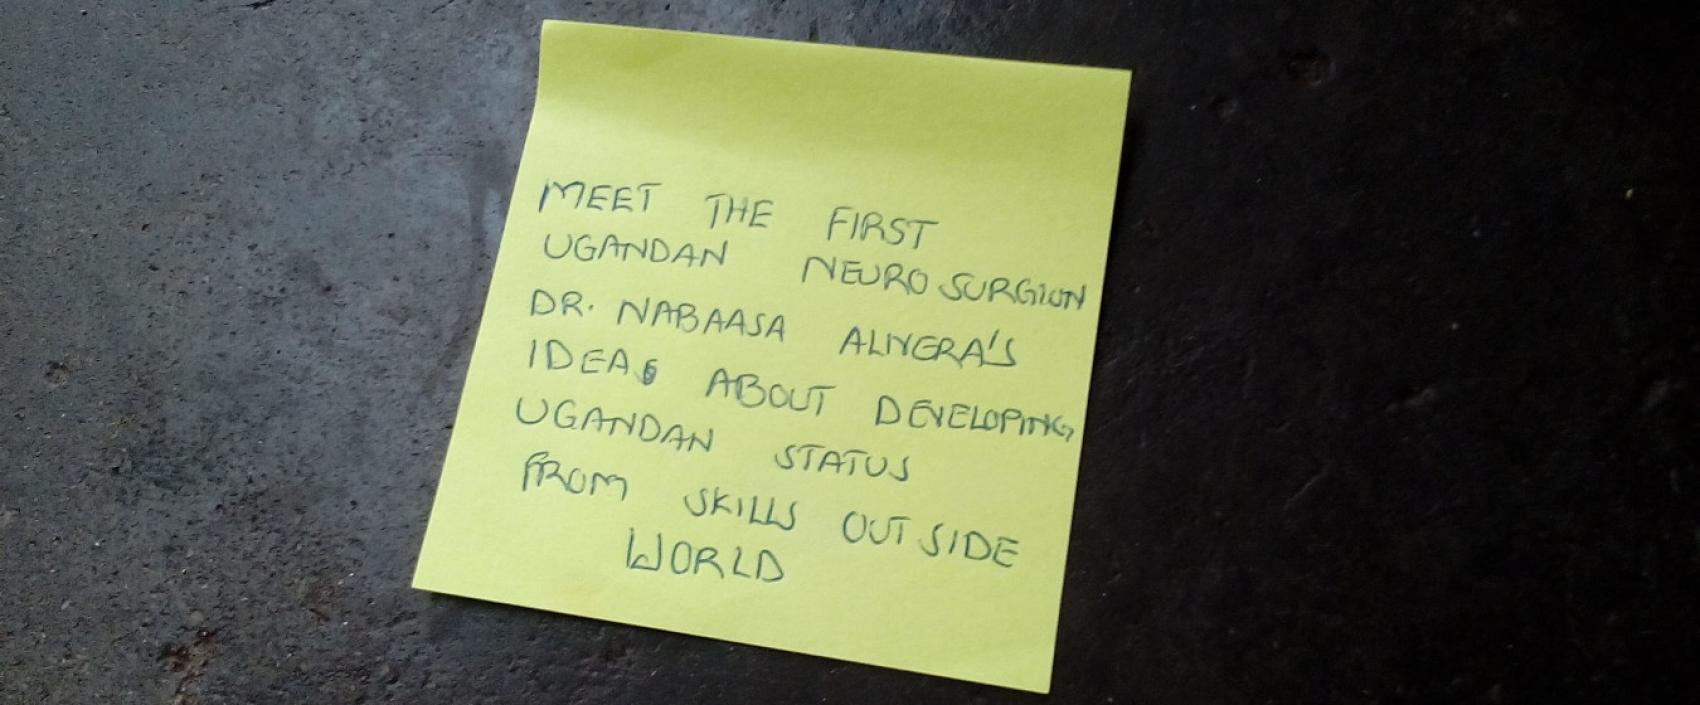 MEET THE FIRST
UGANDAN NEURO SURGION
DR. NABAASA ALIYERA'S
IDEAS ABOUT DEVELOPING
UGANDAN STATUS
FROM SKILLS OUT SIDE
WORLD